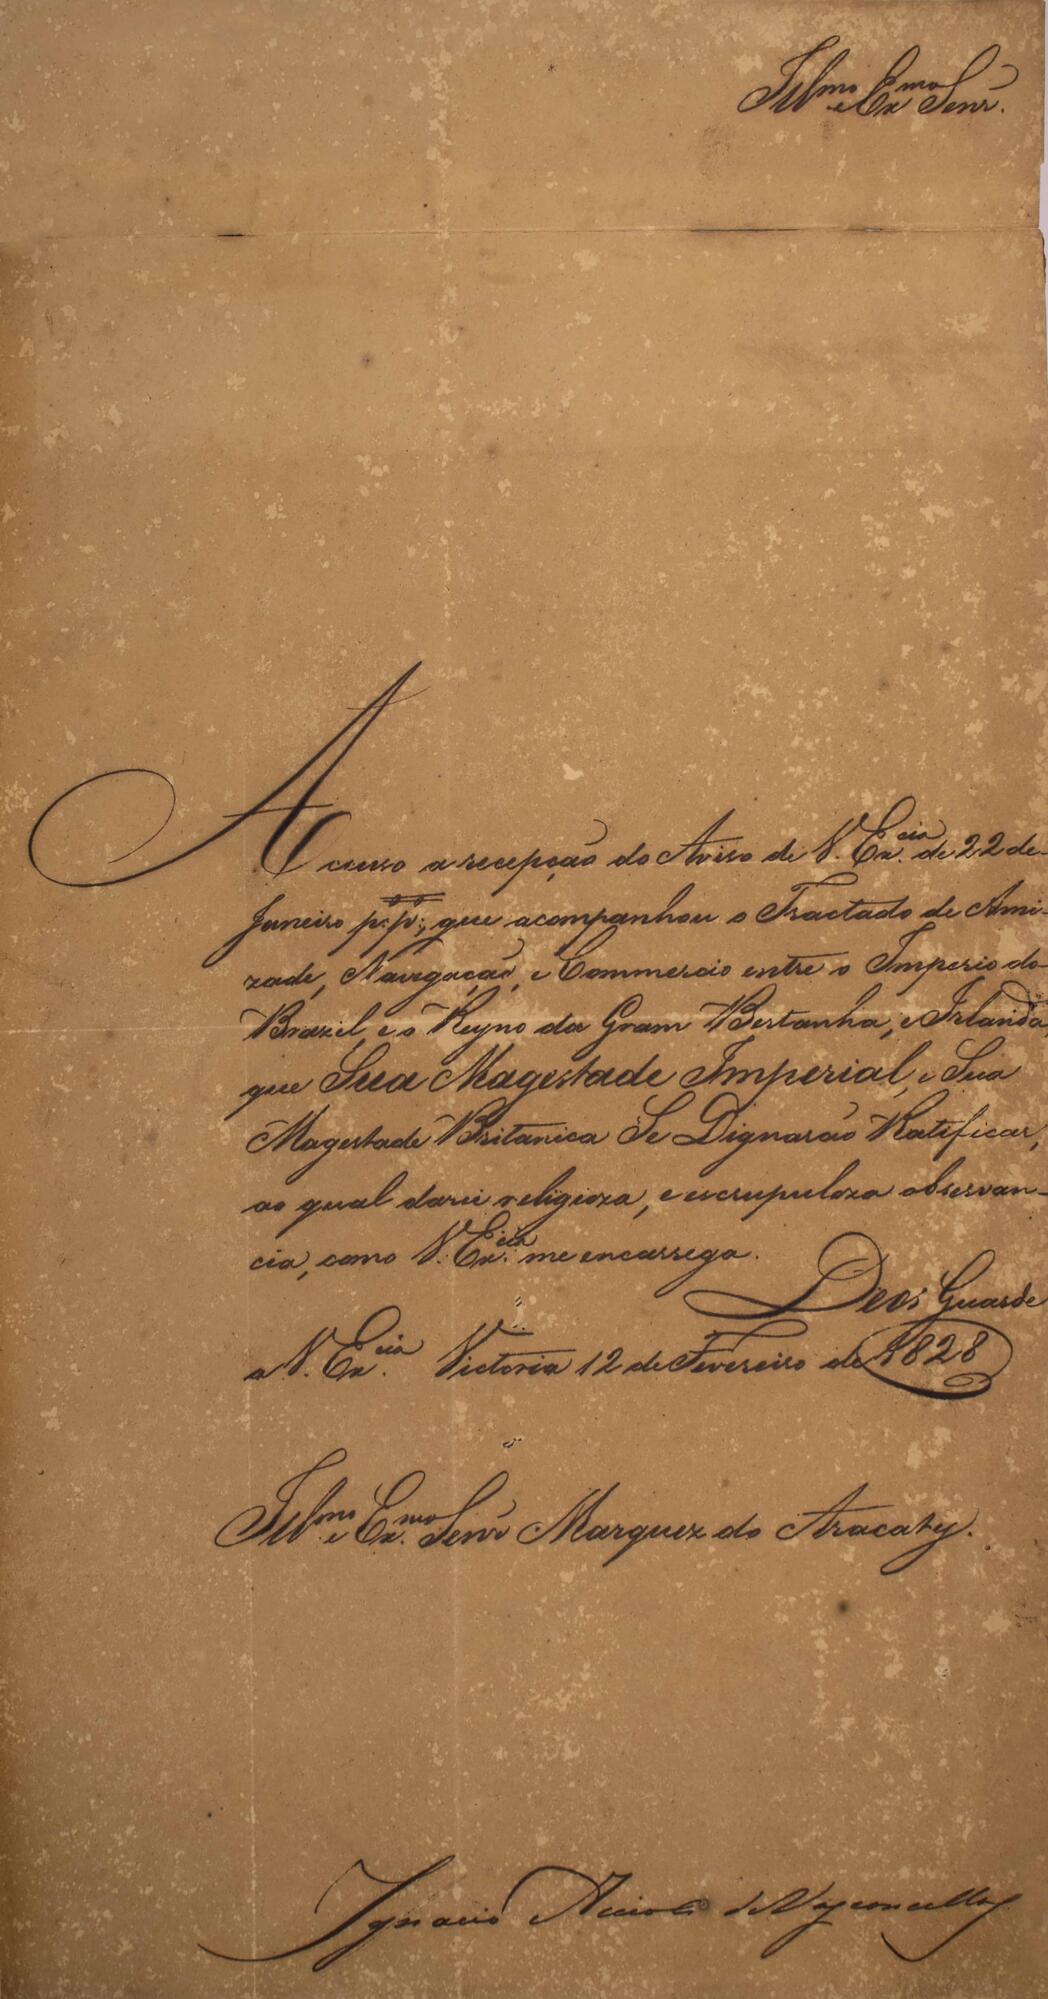 Illmo e Exmo Senr.
Accuso a recepção do Aviso de V. Excia de 22 de
Janeiro p:p:, que acompanhou o Tractado de Ami-
zade, Navegação, e Commercio entre o Imperio do
Brazil, e o Reyno da Gram Bertanha, e Irlanda,
que Sua Magestade Imperial, e Sua
Magestade Britanica Se Dignarão Ratificar,
ao qual darei religioza, e escrupuloza observan-
cia, como V. Excia me encarrega.
Deos Guarde
a V. Excia Victoria 12 de Fevereiro de 1828
Illmo e Exmo Senr Marquez do Aracaty.
Ignacio Accioli de Vasconcellos